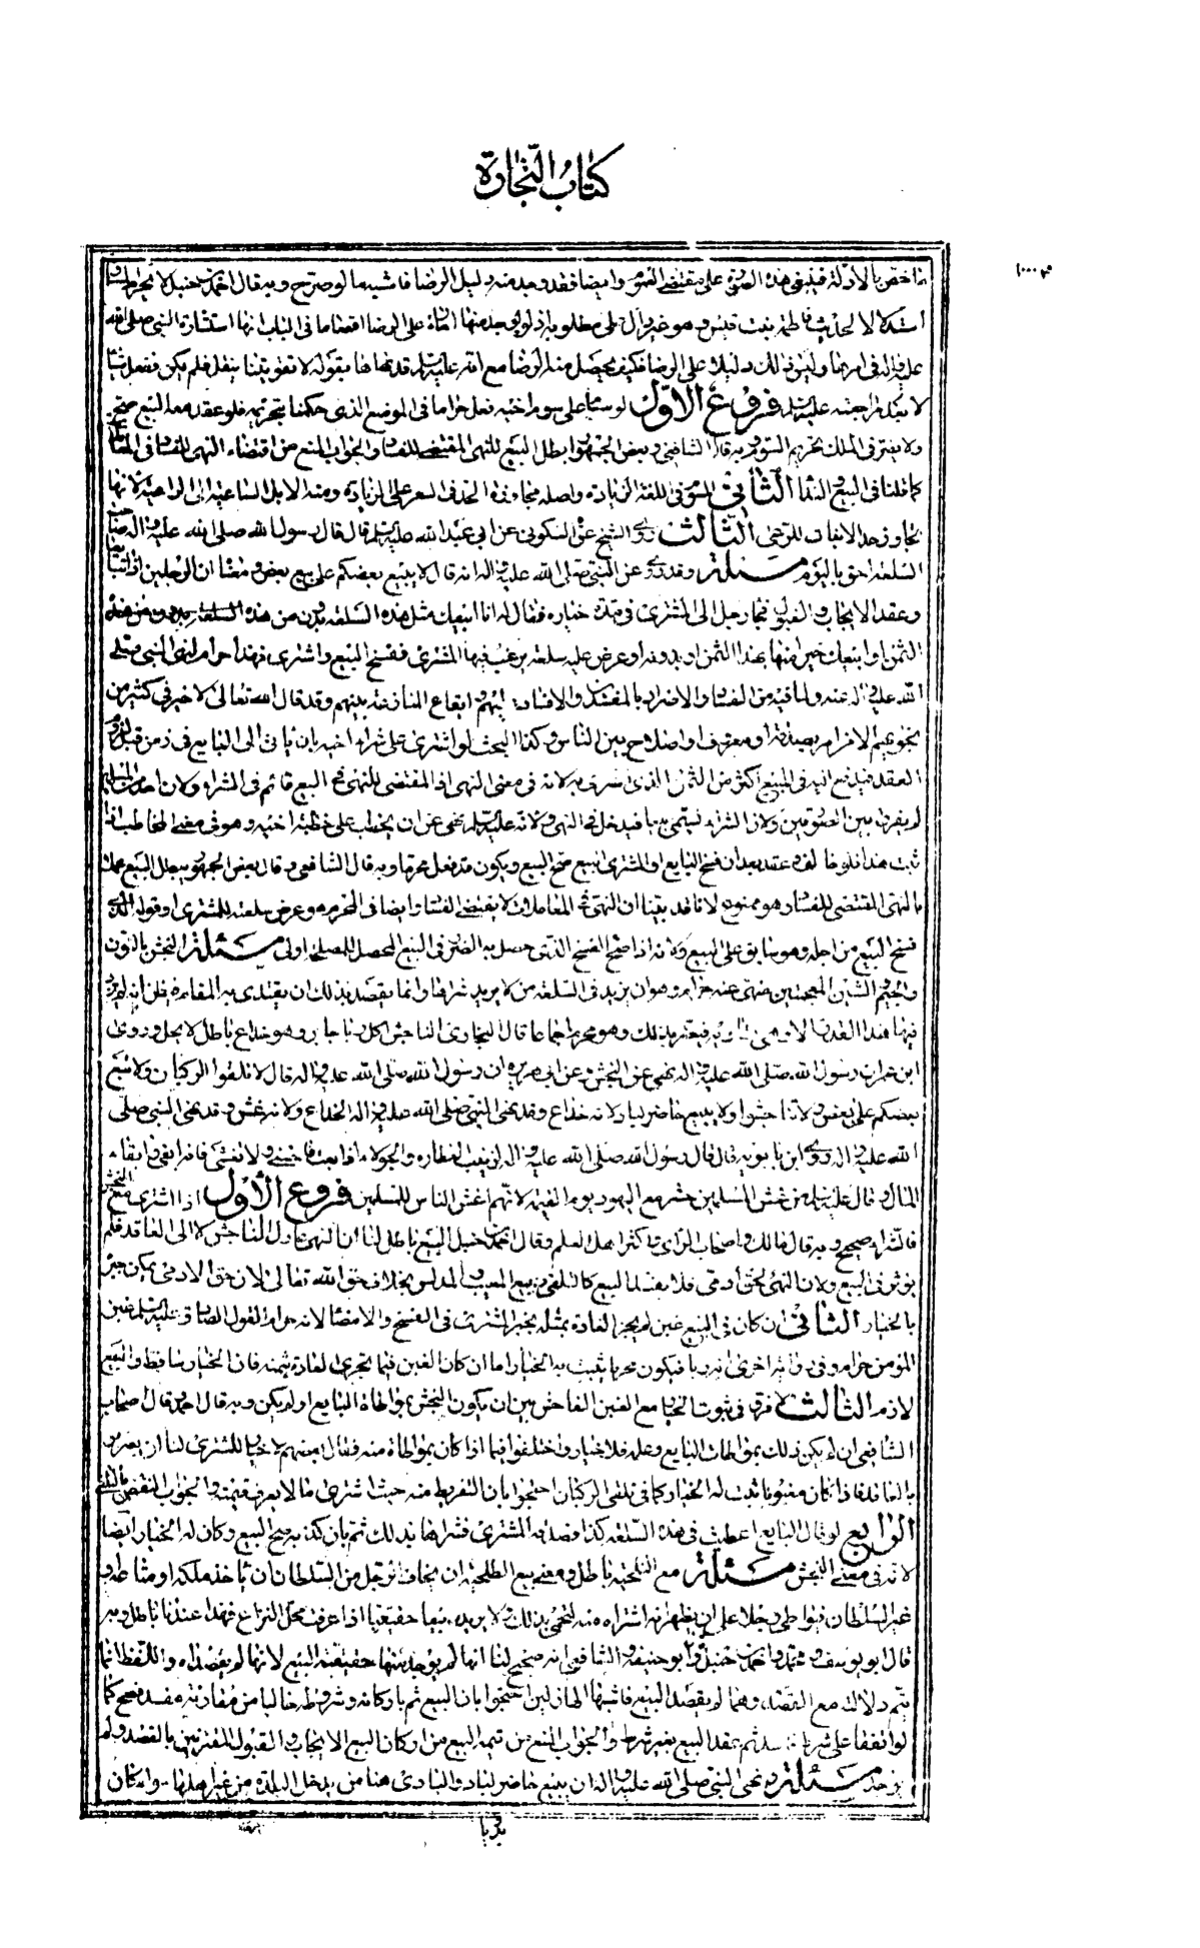 كتاب التجارة
١٠٠٠٣
ما خص بالأدلة فيبقى هذه الصورة على مقتضى العموم وأيضا فقد وجد منه دليل الرضا فأشبه ما لو صرح وبه قال أحمد بن حنبل لا يحرم
استدلالا لحديث فاطمة بنت قيس وهو غير دال على مطلوبه إذ لم يوجد منها ما دل على الرضا اقصى ما في الباب انها استشارة النبي صلى الله
عليه وآله في امرها وليس في ذلك دليل على الرضا فكيف يحصل منه الرضا مع انه عليه السلم قد نهاها بقوله لا تفوتينا بنفسك فلم يكن تفعل شيئا
لا بعد مراجعته عليه السلم فروع الأول لو ساوم على سوم اخيه فعل حراما في الموضع الذي حكمنا بتحريمه فلو عقد معه البيع صح
ولا يؤثر في الملك تحريم السوم وبه قال الشافعي وبعض الجمهور ابطل البيع للنهي المقتضي للفساد والجواب المنع من اقتضاء النهي للفساد في المعاملات
كما قلنا في البيع والنداء الثاني السوم في اللغة الزيادة واصله مجاوزة الحد في السعر على الزيادة ومنه الابل الساعية الى الراعية لانها
تجاوز حد الانفاد للرعي الثالث روى الشيخ عن السكوني عن أبي عبد الله عليه السلم قال قال رسول الله صلى الله عليه وآله صاحب
السلعة احق بالسوم مسئلة وقد روي عن النبي صلى الله عليه وآله انه قال لا يبيع بعضكم على بيع بعض ومعناه ان الرجلين اذا تبايعا
وعقد الايجاب والقبول فجاء رجل الى المشتري في مدة خياره فقال له انا ابيعك مثل هذه السلعة بدون من هذه
الثمن او ابيعك خيرا منها بهذا الثمن او بدونه او عرض عليه سلعة يرغب فيها المشتري ففسخ البيع واشترى فهذا حرام لنهي النبي صلى
الله عليه وآله عنه ولما فيه من الفساد والاضرار بالمفسد والافساد بينهم وايقاع المنازعة بينهم وقد قال الله تعالى لا خير في كثير من
نجويهم الا من امر بصدقة او معروف او اصلاح بين الناس وكذا البحث لو اشترى على شراء اخيه بان يأتي الى البايع في زمن قبل لزوم
العقد فيدفع اليه في المبيع اكثر من الثمن الذي اشترى به لانه في معنى النهي اذ المقتضي للنهي في البيع قائم في الشراء ولان احدا من المسلمين
لم يفرق بين الصورتين ولان الشراء يسمى بيعا فيدخل في النهي ولانه عليه السلم نهى عن ان يخطب على خطبة اخيه وهو في معنى المخاطب اذا
ثبت هذا فلو خالف وعقد بعد ان فسخ البايع او المشتري البيع صح البيع ويكون قد فعل محرما وبه قال الشافعي وقال بعض الجمهور يبطل البيع عملا
بالنهي المقتضي للفساد وهو ممنوع لانا قد بينا ان النهي في المعاملات لا يقتضي الفساد وايضا في المحرم هو عرض سلعته للمشتري او قوله الذي
فسخ البيع من اجله وهو سابق على البيع ولانه اذا صح الفسخ الذي حصل به الضرر في البيع المحصل للمصلحة اولى مسئلة النجش بالنون
والجيم الشين المعجمتين منهى عنه حرام وهو ان يزيد في السلعة من لا يريد شراءها وانما يقصد بذلك ان يقتدى به المقامرة فلن انه لم يزد
فيها هذا القدر الا وهي تساويه فيعتبر بذلك وهو محرم اجماعا قال البخاري الناجش آكل ربا خائن وهو خداع باطل لا يحل وروى
ابن عمر ان رسول الله صلى الله عليه وآله نهى عن النجش وعن ابي هريرة ان رسول الله صلى الله عليه وآله قال لا تلقوا الركبان ولا يبيع
بعضكم على بعض ولا تناجشوا ولا يبيع حاضر لباد ولانه خداع وقد نهى النبي صلى الله عليه وآله الخداع ولانه غش وقد نهى النبي صلى
الله عليه وآله روى ابن بابويه قال قال رسول الله صلى الله عليه وآله لزينب العطارة والحولاء اذا بعت فاحسني ولا تغشي فانه اتقى وابقاء
للمال وقال عليه السلم من غش المسلمين حشر مع اليهود يوم القيمة لانهم اغش الناس للمسلمين فروع الأول اذا اشترى مع النجش
فالشراء صحيح وبه قال مالك واصحاب الرأي واكثر اهل العلم وقال احمد بن حنبل البيع باطل لنا ان النهي عاد الى الناجش لا الى العاقد فلم
يؤثر في البيع ولان النهي لحق آدمي فلا يفسد البيع كالتلقي وبيع المعيب والمدلس بخلاف حق الله تعالى لان حق الآدمي يمكن جبره
بالخيار الثاني ان كان في البيع غبن لم يجز العادة بمثله تخير المشتري في الفسخ والامضاء لانه حرام لقول الصادق عليه السلم غبن
المؤمن حرام وفي رواية اخرى انه ربا فيكون محرما يثبت به الخيار اما ان كان الغبن فيما تجري العادة بثمنه فان الخيار ساقط والبيع
لازم الثالث لا فرق في ثبوت الخيار مع الغبن الفاحش بين ان يكون النجش بمواطاة البايع او لم يكن وبه قال احمد وقال اصحاب
الشافعي ان لم يكن ذلك بمواطات البايع وعلمه فلا خيار واختلفوا فيما اذا كان بمواطاة منه فقال بعضهم لا خيار للمشتري لنا ان يضر من
بالعاقد فاذا كان مغبونا ثبت له الخيار كما في تلقي الركبان احتجوا بان التفريط منه حيث اشترى ما لا يعرف قيمته والجواب النقض بالتلقي
الرابع لو قال البايع اعطيت في هذه السلعة كذا فصدقه المشتري فشراها بذلك ثم بان كذبه صح البيع وكان له الخيار ايضا
لانه في معنى النجش مسئلة بيع التلجئة باطل ومعنى بيع التلجئة ان يخاف الرجل من السلطان ان يأخذ ملكه او متاعه او
غير السلطان فيواطي رجلا على ان يظهر انه اشتراه منه ليحتمي بذلك ولا يريد بيعا حقيقيا اذا عرفت محل النزاع فهذا عندنا باطل وبه
قال ابو يوسف ومحمد واحمد بن حنبل وقال ابو حنيفة والشافعي انه صحيح لنا انهما لم يوجد منهما حقيقة البيع لانهما لم يقصداه واللفظ انما
تتم دلالته مع القصد وهما لم يقصدا البيع فاشبها الهازلين احتجوا بان البيع تم باركانه وشروطه خاليا من مقارنة مفسد فصح كما
لو اتفقا على شرط فاسد ثم عقدا البيع بغير شرط والجواب المنع من تتمة البيع من اركان البيع الايجاب والقبول المقترنين بالقصد ولم
يوجد مسئلة نهى النبي صلى الله عليه وآله ان يبيع حاضر لباد والبادي هنا من يدخل البلدة من غير اهلها سواء كان
بدويا